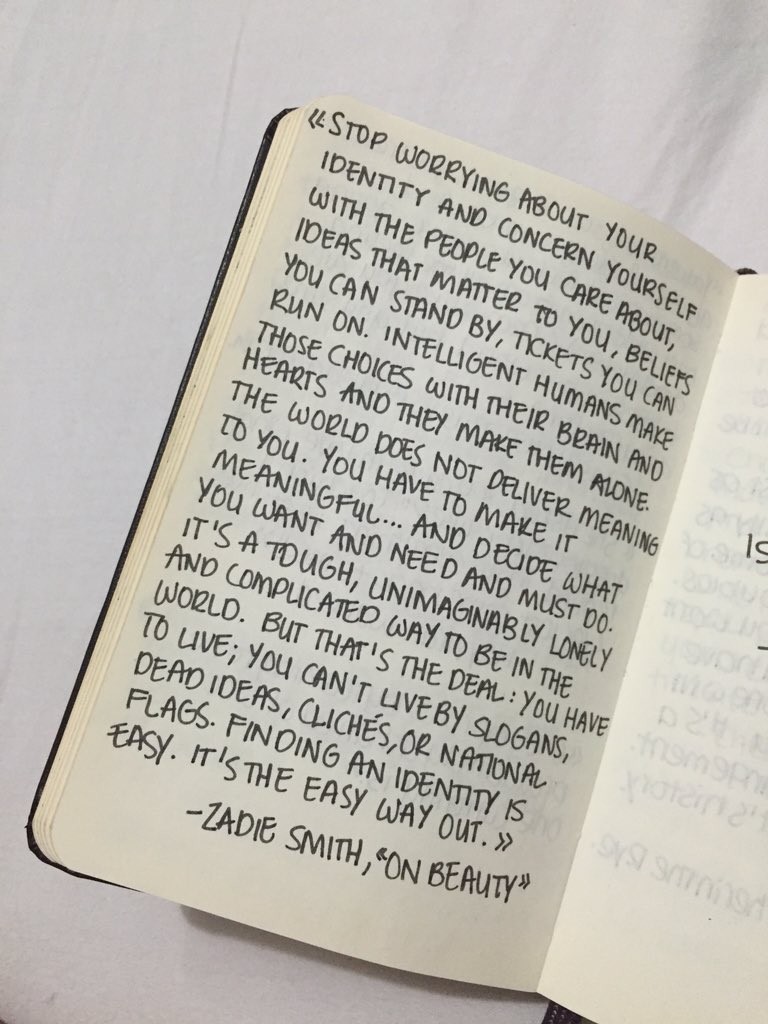 «STOP WORRYING ABOUT YOUR
IDENTITY AND CONCERN YOURSELF
WITH THE PEOPLE YOU CARE ABOUT,
IDEAS THAT MATTER TO YOU, BELIEFS
YOU CAN STAND BY, TICKETS YOU CAN
RUN ON. INTELLIGENT HUMANS MAKE
THOSE CHOICES WITH THEIR BRAIN AND
HEARTS AND THEY MAKE THEM ALONE.
THE WORLD DOES NOT DELIVER MEANING
TO YOU. YOU HAVE TO MAKE IT
MEANINGFUL... AND DECIDE WHAT
YOU WANT AND NEED AND MUST DO.
IT'S A TOUGH, UNIMAGINABLY LONELY
AND COMPLICATED WAY TO BE IN THE
WORLD. BUT THAT'S THE DEAL: YOU HAVE
TO LIVE; YOU CAN'T LIVE BY SLOGANS,
DEAD IDEAS, CLICHÉS, OR NATIONAL
FLAGS. FINDING AN IDENTITY IS
EASY. IT'S THE EASY WAY OUT.»
-ZADIE SMITH, «ON BEAUTY»
IS